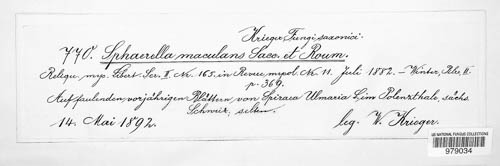 Krieger, Fungi saxonici.
770. Sphaerella maculans Sacc. et Roum.
Reliqu. myc. Libert Ser. II. No. 165. in Revue mycol. No. 11. Juli 1882. – Winter, Pilze, II.
p. 369.
Auf faulenden vorjährigen Blättern von Spiraea Ulmaria L. im Polenzthale, sächs.
Schweiz, selten.
14. Mai 1892.
leg. W. Krieger.
US NATIONAL FUNGUS COLLECTIONS
979034